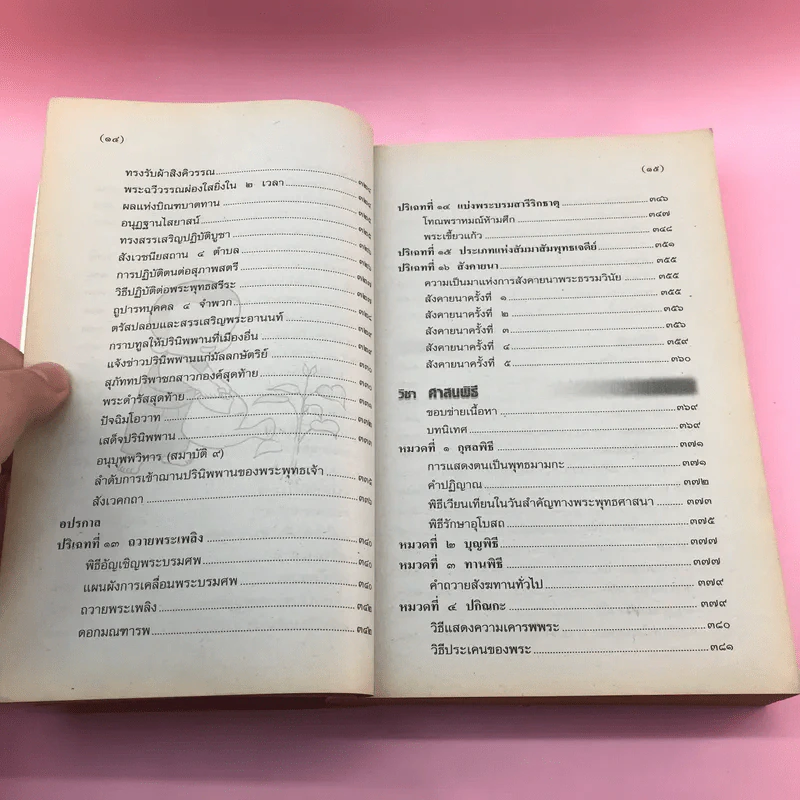 (๑๔)
ทรงรับผ้าสิงคิวรรณ
พระฉวีวรรณผ่องใสยิ่งใน ๒ เวลา
ผลแห่งบิณฑบาตทาน
อนุฏฐานไสยาสน์
ทรงสรรเสริญปฏิบัติบูชา
สังเวชนียสถาน ๔ ตำบล
การปฏิบัติตนต่อสุภาพสตรี
วิธีปฏิบัติต่อพระพุทธสรีระ
ถูปารหบุคคล ๔ จำพวก
ตรัสปลอบและสรรเสริญพระอานนท์
กราบทูลให้ปรินิพพานที่เมืองอื่น
แจ้งข่าวปรินิพพานแก่มัลลกษัตริย์
สุภัททปริพาชกสาวกองค์สุดท้าย
พระดำรัสสุดท้าย
ปัจฉิมโอวาท
เสด็จปรินิพพาน
อนุบุพพวิหาร (สมาบัติ ๙)
ลำดับการเข้าฌานปรินิพพานของพระพุทธเจ้า ๓๓๕
สังเวคกถา
อปรกาล
ปริเฉทที่ ๑๓ ถวายพระเพลิง ๓๔๐
พิธีอัญเชิญพระบรมศพ ๓๔๐
แผนผังการเคลื่อนพระบรมศพ ๓๔๐
ถวายพระเพลิง ๓๔๒
ดอกมณฑารพ ๓๔๒
(๑๕)
ปริเฉทที่ ๑๔ แบ่งพระบรมสารีริกธาตุ ๓๔๖
โทณพราหมณ์ห้ามศึก ๓๔๗
พระเขี้ยวแก้ว
ปริเฉทที่ ๑๕ ประเภทแห่งสัมมาสัมพุทธเจดีย์ ๓๕๑
ปริเฉทที่ ๑๖ สังคายนา ๓๕๕
ความเป็นมาแห่งการสังคายนาพระธรรมวินัย ๓๕๕
สังคายนาครั้งที่ ๑ ๓๕๕
สังคายนาครั้งที่ ๒ ๓๕๖
สังคายนาครั้งที่ ๓ ๓๕๖
สังคายนาครั้งที่ ๔ ๓๕๙
สังคายนาครั้งที่ ๕ ๓๖๐
วิชา ศาสนพิธี
ขอบข่ายเนื้อหา ๓๖๙
บทนิเทศ ๓๖๙
หมวดที่ ๑ กุศลพิธี ๓๗๑
การแสดงตนเป็นพุทธมามกะ ๓๗๑
คำปฏิญาณ ๓๗๒
พิธีเวียนเทียนในวันสำคัญทางพระพุทธศาสนา ๓๗๓
พิธีรักษาอุโบสถ ๓๗๕
หมวดที่ ๒ บุญพิธี ๓๗๗
หมวดที่ ๓ ทานพิธี ๓๗๗
คำถวายสังฆทานทั่วไป ๓๗๙
หมวดที่ ๔ ปกิณกะ ๓๗๙
วิธีแสดงความเคารพพระ ๓๘๐
วิธีประเคนของพระ ๓๘๑